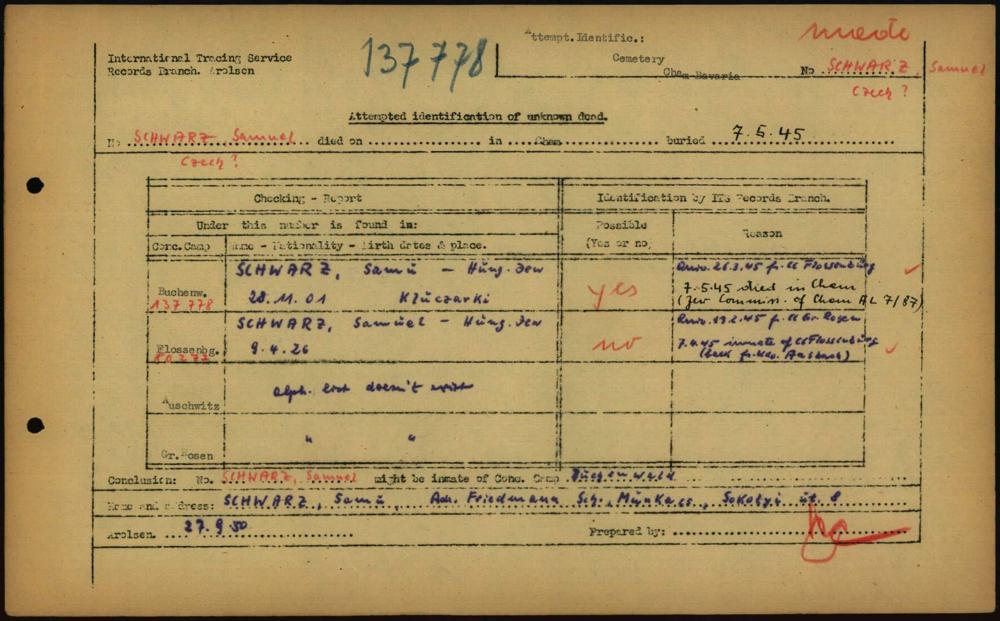 Attempt. Identific.:
made
International Tracing Service
137 778
Cemetery
Records Branch. Arolsen
Cham-Bavaria
No SCHWARZ, Samuel
Czech ?
Attempted identification of unknown dead.
No SCHWARZ, Samuel died on in Cham buried 7.5.45
Czech ?
Checking - Report
Identification by ITS Records Branch.
Under this number is found in:
Possible
(Yes or no)
Reason
Conc. Camp
Name - Nationality - Birth dates & place.
SCHWARZ, Samü - Hung. Jew
26.3.45 f. CC Flossenbürg
Buchenw.
137 778
28.11.01 Kluczarki
yes
7.5.45 died in Cham
(Jew Commiss. of Cham AL 7/87)
SCHWARZ, Samuel - Hung. Jew
f. CC Gr. Rosen
Flossenbg.
9.4.26
no
7.4.45 inmate of CC Flossenbürg
(back fr. Kdo. Ansbach)
Auschwitz
alph. list doesn't exist
Gr. Rosen
" "
Conclusion: No. SCHWARZ, Samuel might be inmate of Conc. Camp Buchenwald
Name and address: SCHWARZ, Samü, Adr. Friedmann Munkacs, 8
Arolsen. 27.9.50
Prepared by: